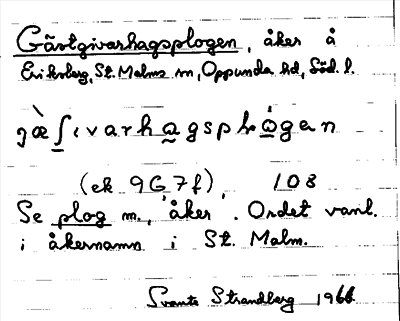 Gästgivarhagsplogen, åker å
Eriksberg, St. Malms sn, Oppunda hd, Söd. l.
(ek 9G7f), 108
Se plog m., 'åker'. Ordet vanl.
i åkernamn i St. Malm.
Svante Strandberg 1966